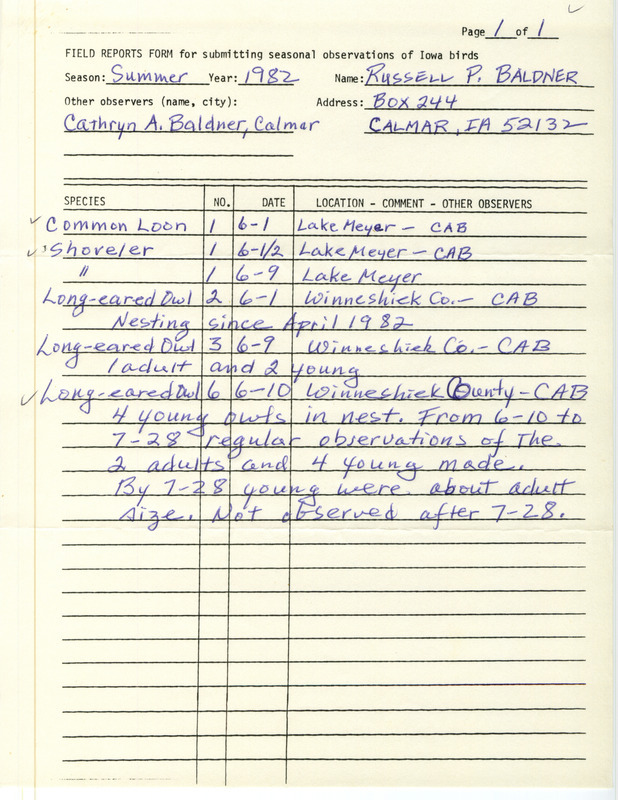 Page 1 of 1
FIELD REPORTS FORM for submitting seasonal observations of Iowa birds
Season: Summer Year: 1982 Name: Russell P. Baldner
Other observers (name, city): Address: Box 244
Cathryn A. Baldner, Calmar CALMAR, IA 52132
SPECIES NO. DATE LOCATION - COMMENT - OTHER OBSERVERS
✓ Common Loon 1 6-1 Lake Meyer - CAB
✓ Shoveler 1 6-1/2 Lake Meyer - CAB
" 1 6-9 Lake Meyer
Long-eared Owl 2 6-1 Winneshiek Co. - CAB
Nesting since April 1982
Long-eared Owl 3 6-9 Winneshiek Co. - CAB
1 adult and 2 young
✓ Long-eared Owl 6 6-10 Winneshiek County - CAB
4 young owls in nest. From 6-10 to
7-28 regular observations of the
2 adults and 4 young made.
By 7-28 young were about adult
size. Not observed after 7-28.